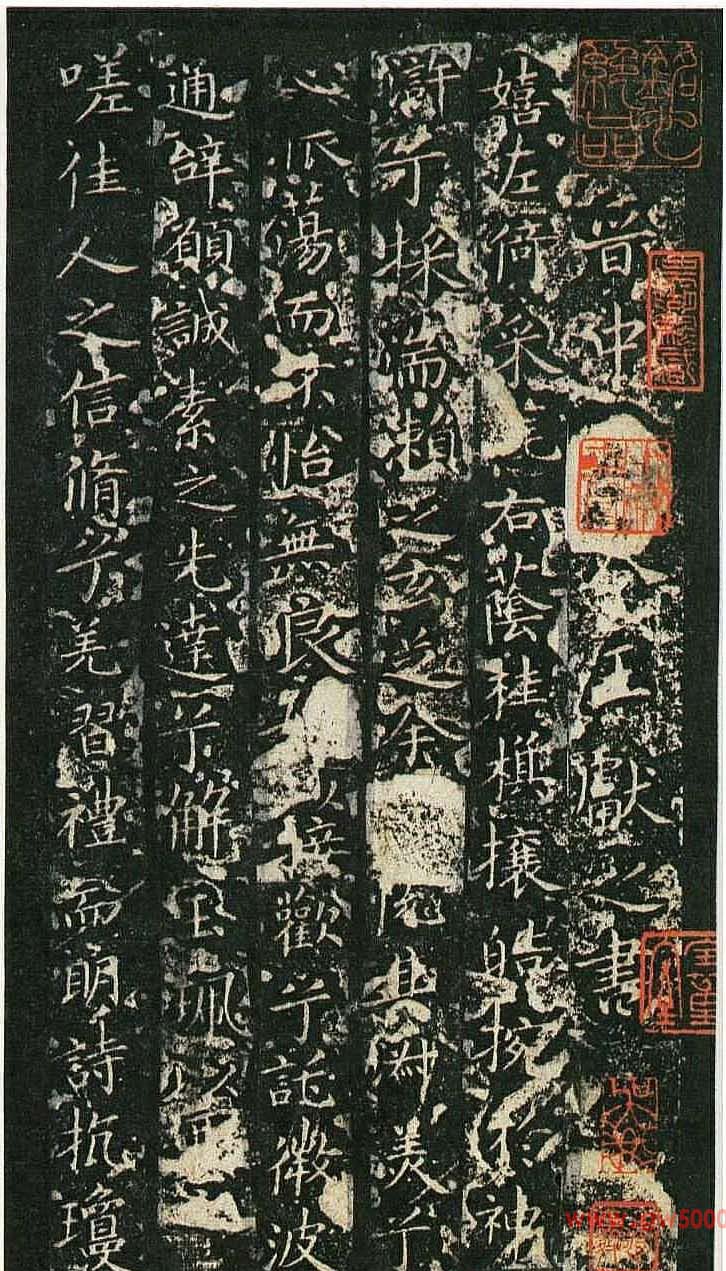 銘心絕品
晉中令王獻之書
嬉左倚采旄右蔭桂旗攘皓捥於神
滸兮採湍瀨之玄芝余悅其淑美兮
心振蕩而不怡無良以接歡兮託微波
通辭願誠素之先達兮解玉珮以
嗟佳人之信脩兮羌習禮而明詩抗瓊